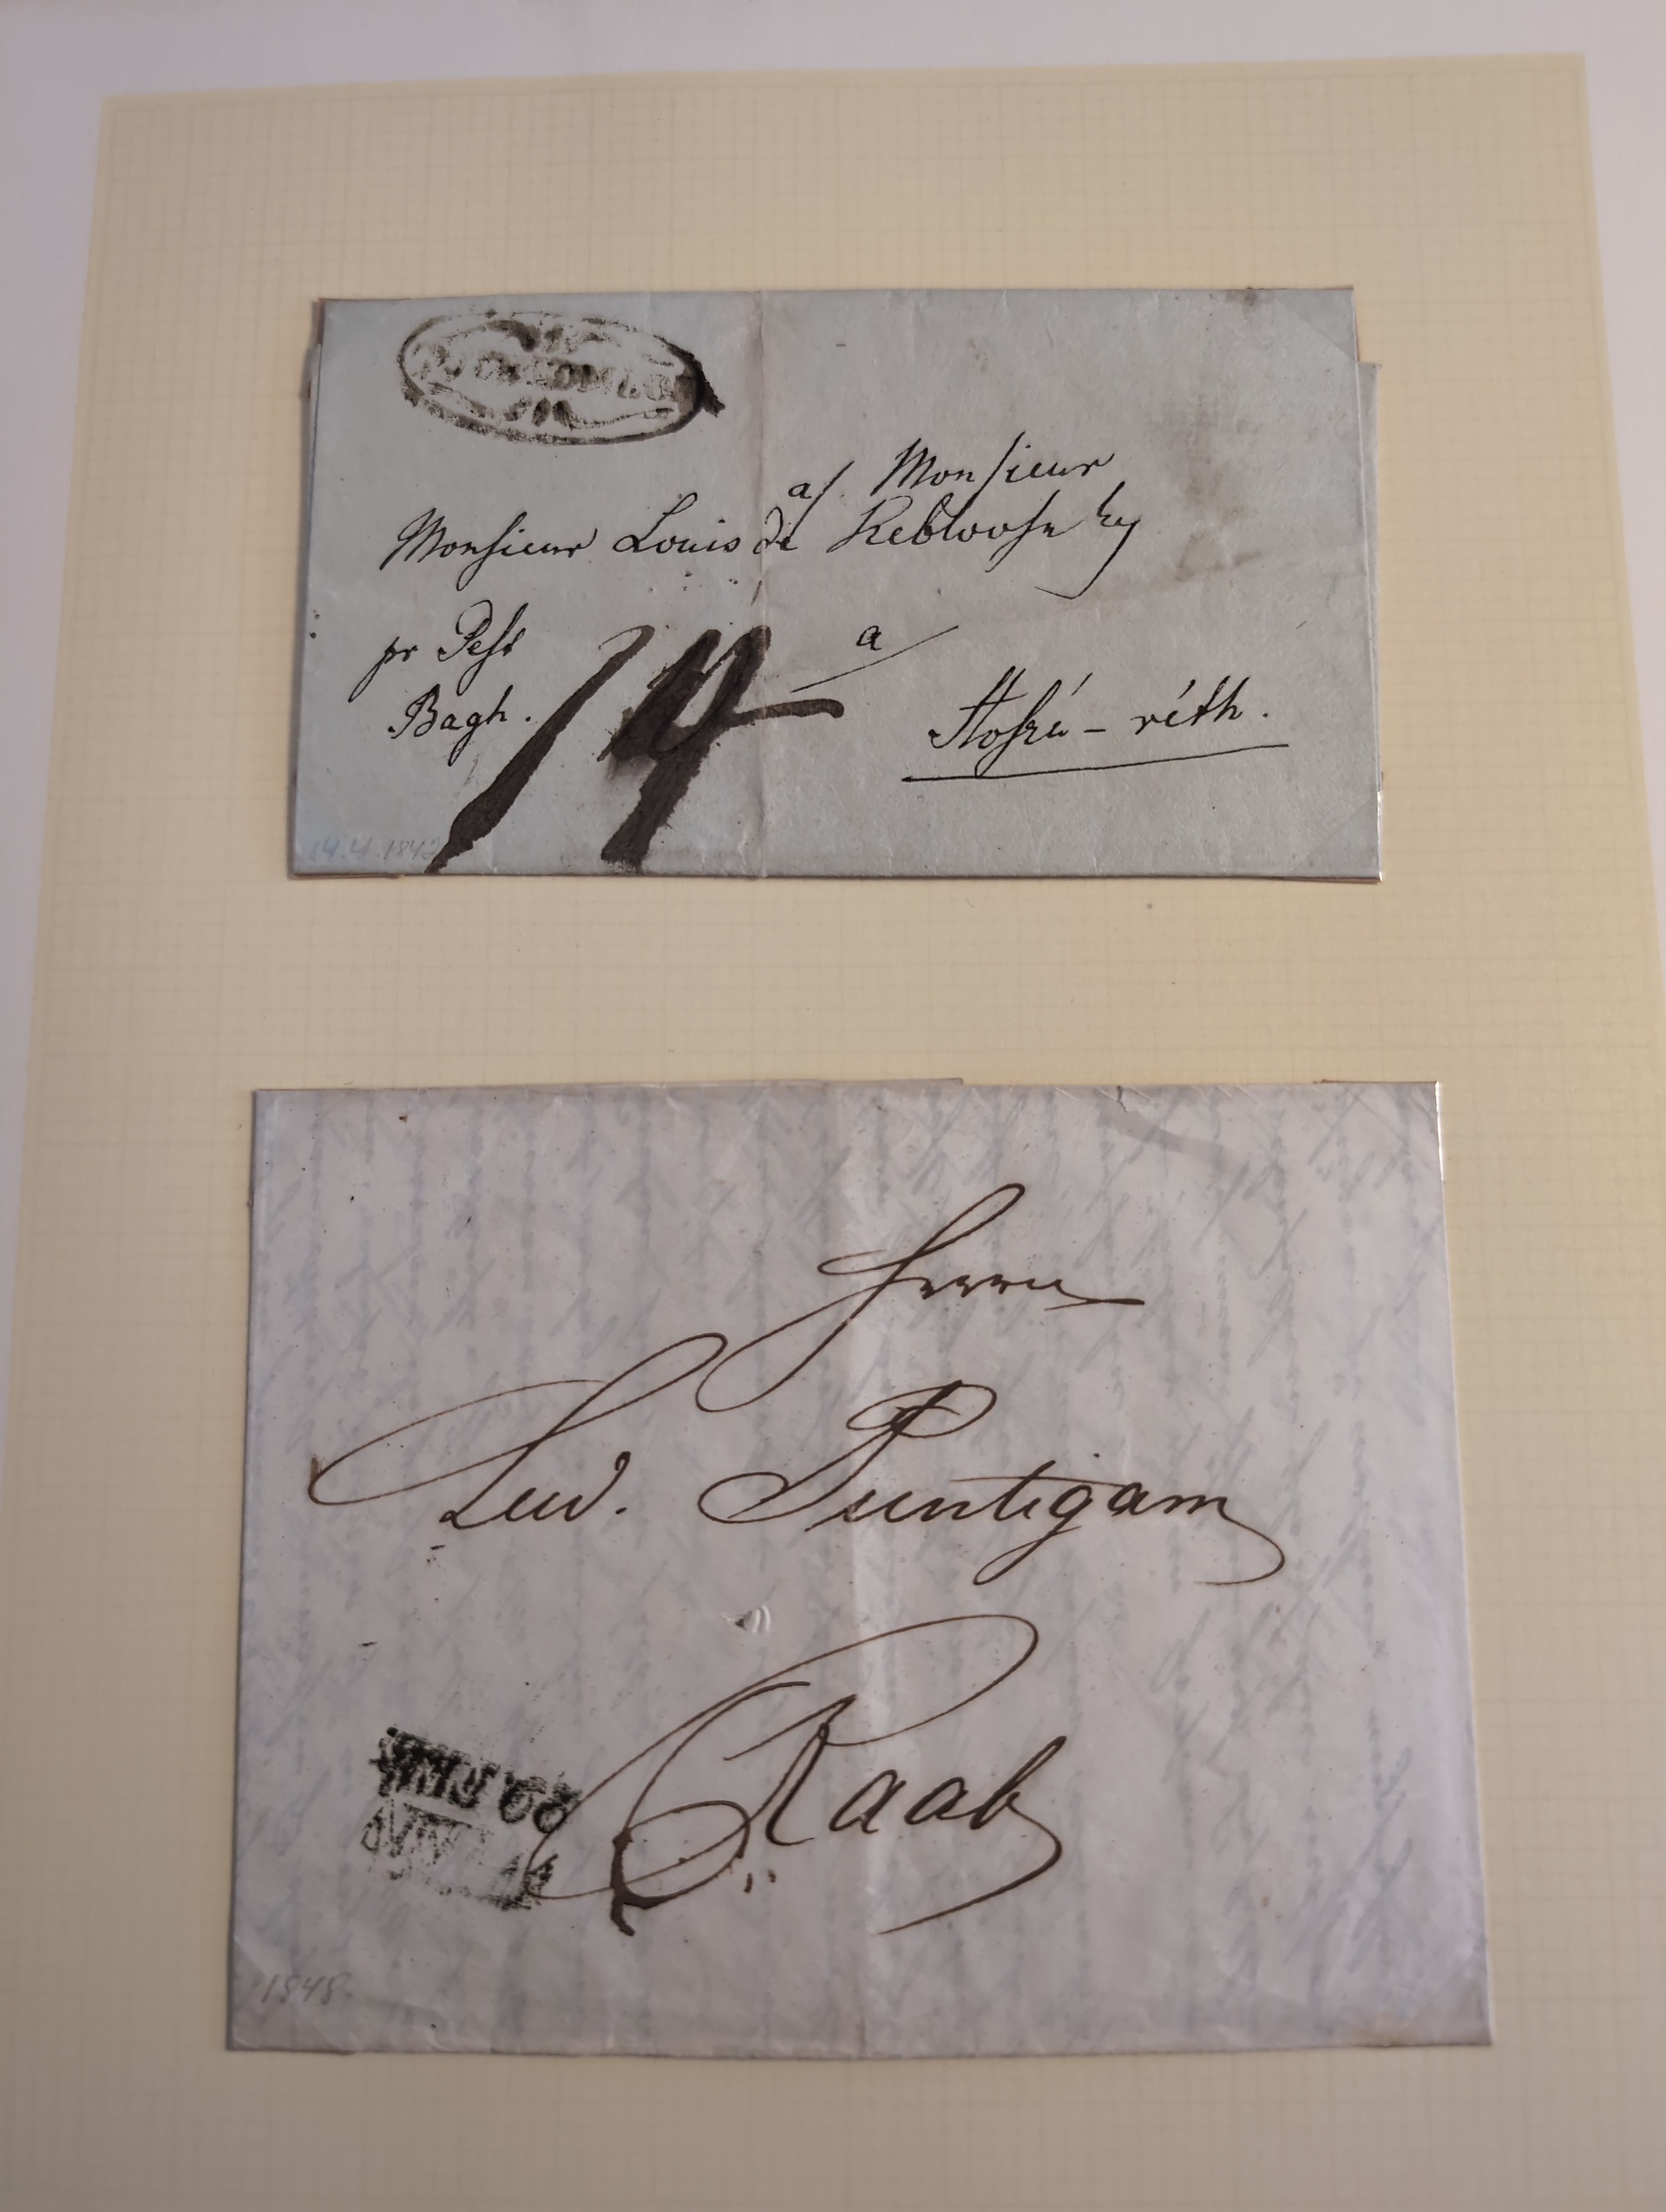 a/. Monsieur
Monsieur Louis de
pr Pest
Bagh.
14
a
Hoszú-réth.
14.4.1842
Herrn
Lud. Puntigam
Raab
1848